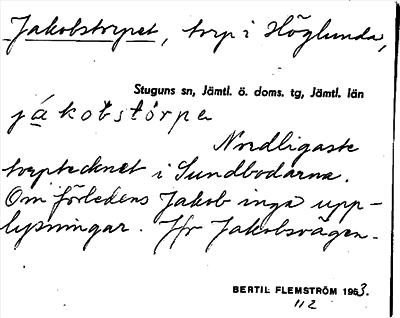 Jakobstorpet, torp i Höglunda,
Stuguns sn, Jämtl. ö. doms. tg, Jämtl. län
jákobstórpe
Nordligaste
torptecknet i Sundbodarna.
Om förledens Jakob inga upp-
lysningar. Jfr Jakobsvägen.
BERTIL FLEMSTRÖM 1953.
11/2